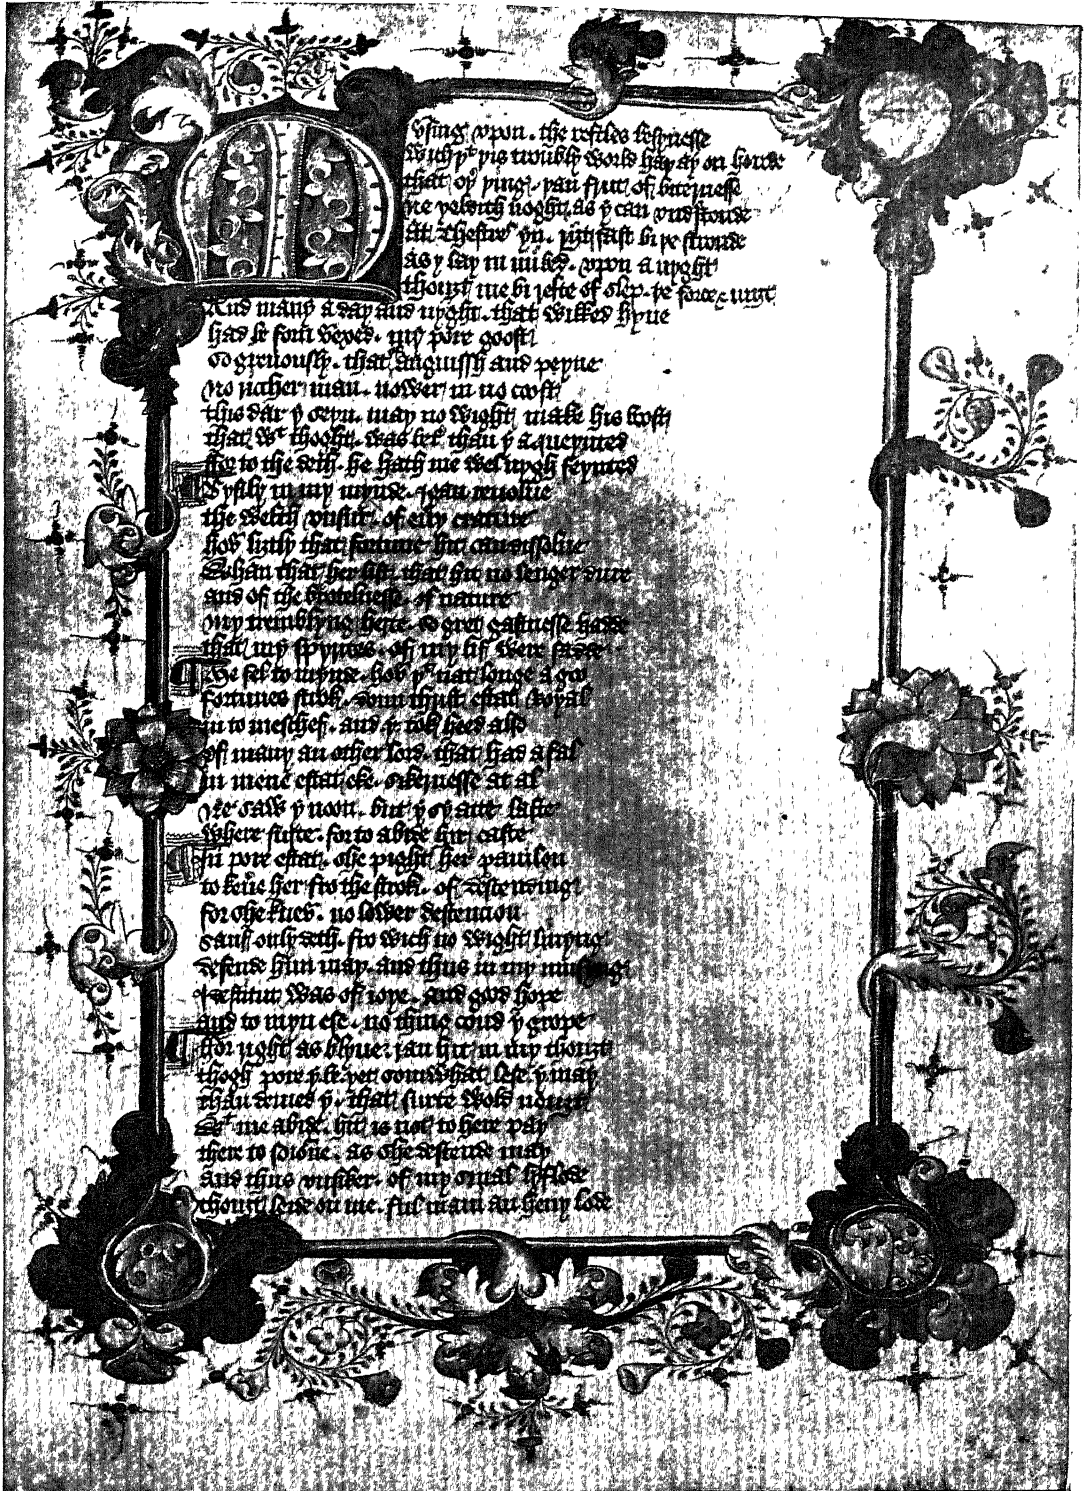 Musing vpon . the restles besynesse
Wich þt þis troubly world haþ ay on honde
that oþr þing . þan frut of bitternesse
Ne yeldith noght . as y can vndstonde
At Chestre yn . right fast bi þe stronde
as y lay in my bed . vpon a nyght
thouȝt me birefte of slep . þe force & miȝt
And many a day and nyght . that wikked hyne
had be forn vexed . my pore goost
So greuously . that anguissh and peyne
No richer man . nower in no coost
this dar y seyn . may no wight make his bost
that wt thoght . was bet than y aqueynted
ffor to the deth . he hath me wel nygh feynted
Bysily in my mynde . y gan reuolue
the welth vnsur . of euery creature
how liȝtly that fortune hit can dissolue
Whan that her list . that hit no lenger dure
and of the brotelnesse . of nature
My tremblyng herte . so gret gastnesse hadde
that my spirites . of my lif were sadde
Me fel to mynde . how þt nat longe ago
fortunes strok . doun thrust estat royal
in to meschef . and y tok heed also
of many an other lord . that had a fal
in mene estat eke . sikernesse at al
Ne saw y noon . but y sy atte laste
where surte . for to abide hir caste
In pore estat . she pight her pauilon
to keuere her fro the strok . of descending
for she knew . no lower descencion
sauf only deth . fro wich no wight liuyng
defende him may . and thus in my musing
destitut was of ioye . and good hope
and to myn ese . no thing coud y grope
ffor right as blyue . ran hit in my thouȝt
thogh pore y be . yet somwhat lese y may
than demed y . that surte wold nouȝt
Wt me abide . hit is not to here pay
there to soiorne . as she descende may
And thus vnsiker . of my smal lyflode
thouȝt leide on me . ful many an heuy lode